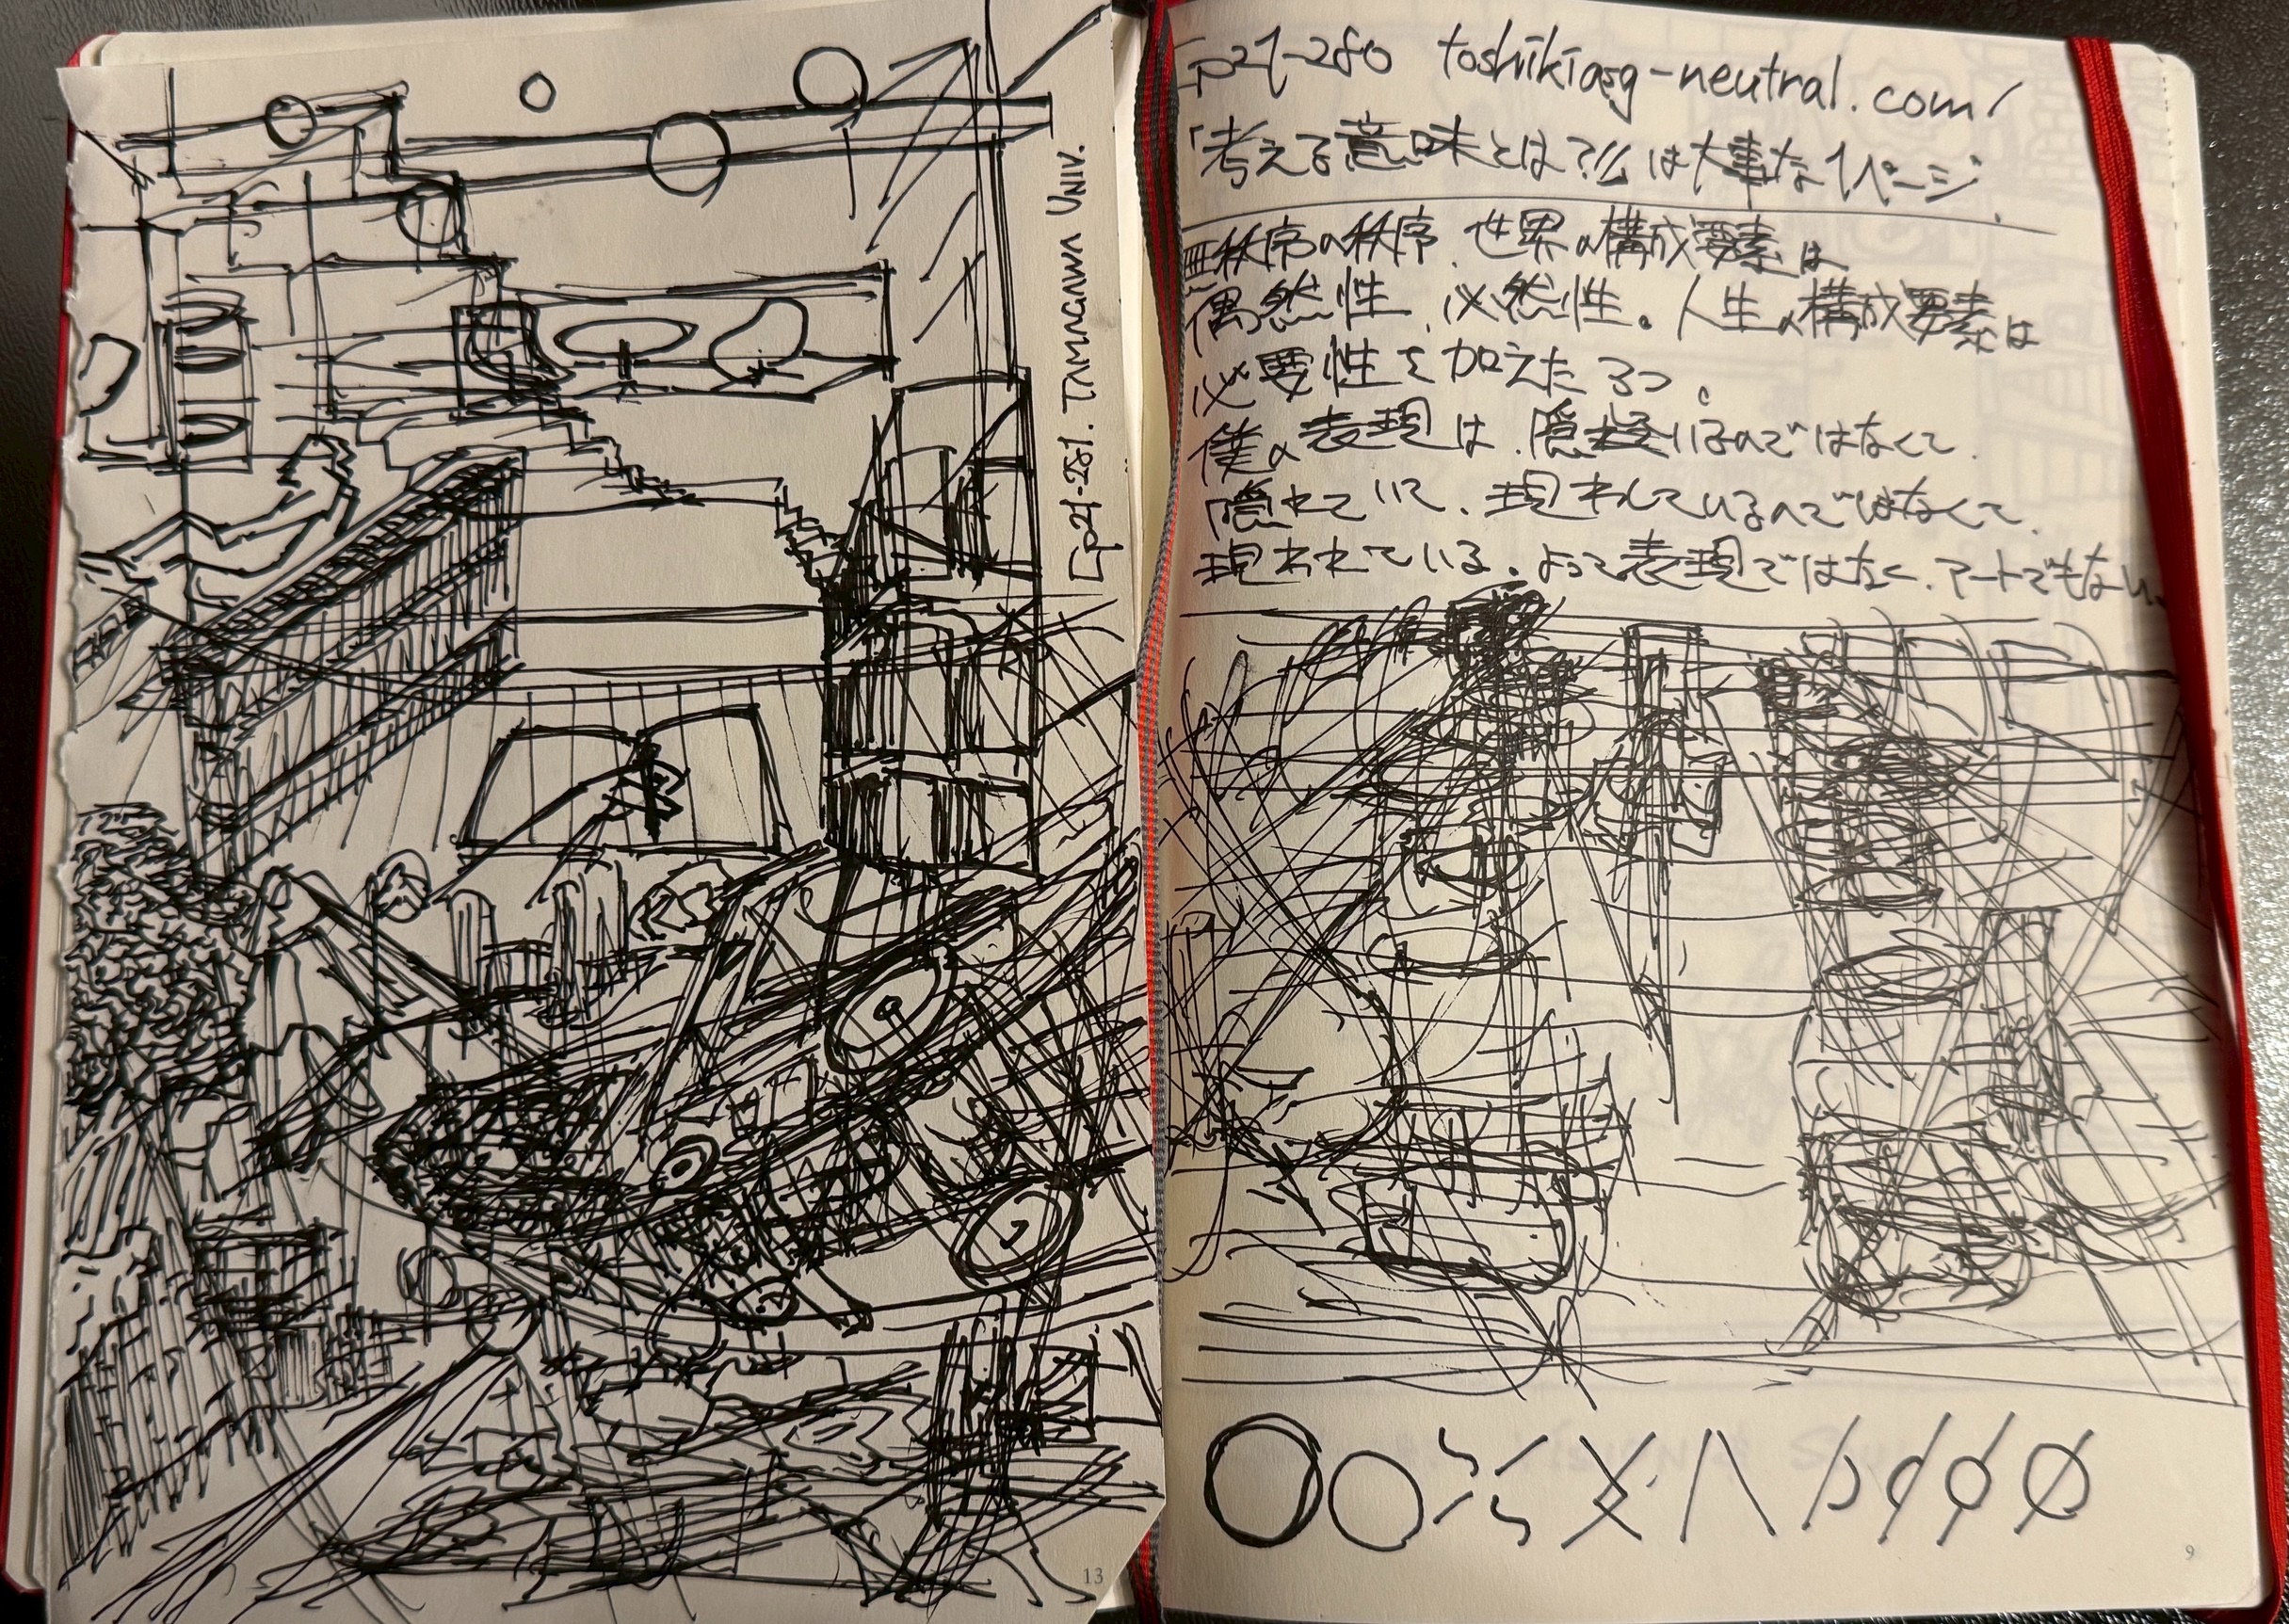 Ep21-281. TAMAGAWA UNIV.
13
Ep21-280 toshikiasg-neutral.com/
「考える意味とは?」は大事な1ページ.
無秩序の秩序. 世界の構成要素は
偶然性、必然性。人生の構成要素は
必要性を加えた3つ。
僕の表現は、隠しているのではなくて.
隠れていて、現わしているのではなくて.
現われている。よって表現ではなく、アートでもない。
9